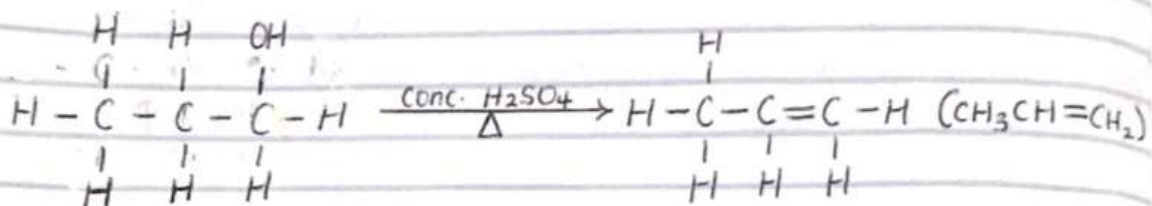 H H OH H
| | | |
H - C - C - C - H conc. H2SO4 → H - C - C = C - H (CH3CH=CH2)
| | | Δ | | |
H H H H H H